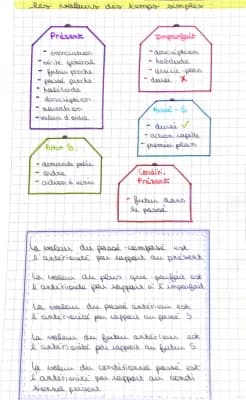 Les valeurs des temps simples
Présent
- énonciation
- vérité générale
- futur proche
- passé proche
- habitude
- description
- narration
- valeur d'ordre
Imparfait
- description
- habitude
- arrière plan
- durée X
Passé - S.
- durée ✓
- action rapide
- premier plan
Futur S.
- demande polie
- ordre
- action à venir
Conditi.
Présent
- futur dans
le passé
La valeur du passé-composé est
l'antériorité par rapport au présent
La valeur du plus-que-parfait est
l'antériorité par rapport à l'imparfait
La valeur du passé antérieur est
l'antériorité par rapport au passé S.
La valeur du futur antérieur est
l'antériorité par rapport au futur S
La valeur du conditionnel passé est
l'antériorité par rapport au condi
tionnel présent